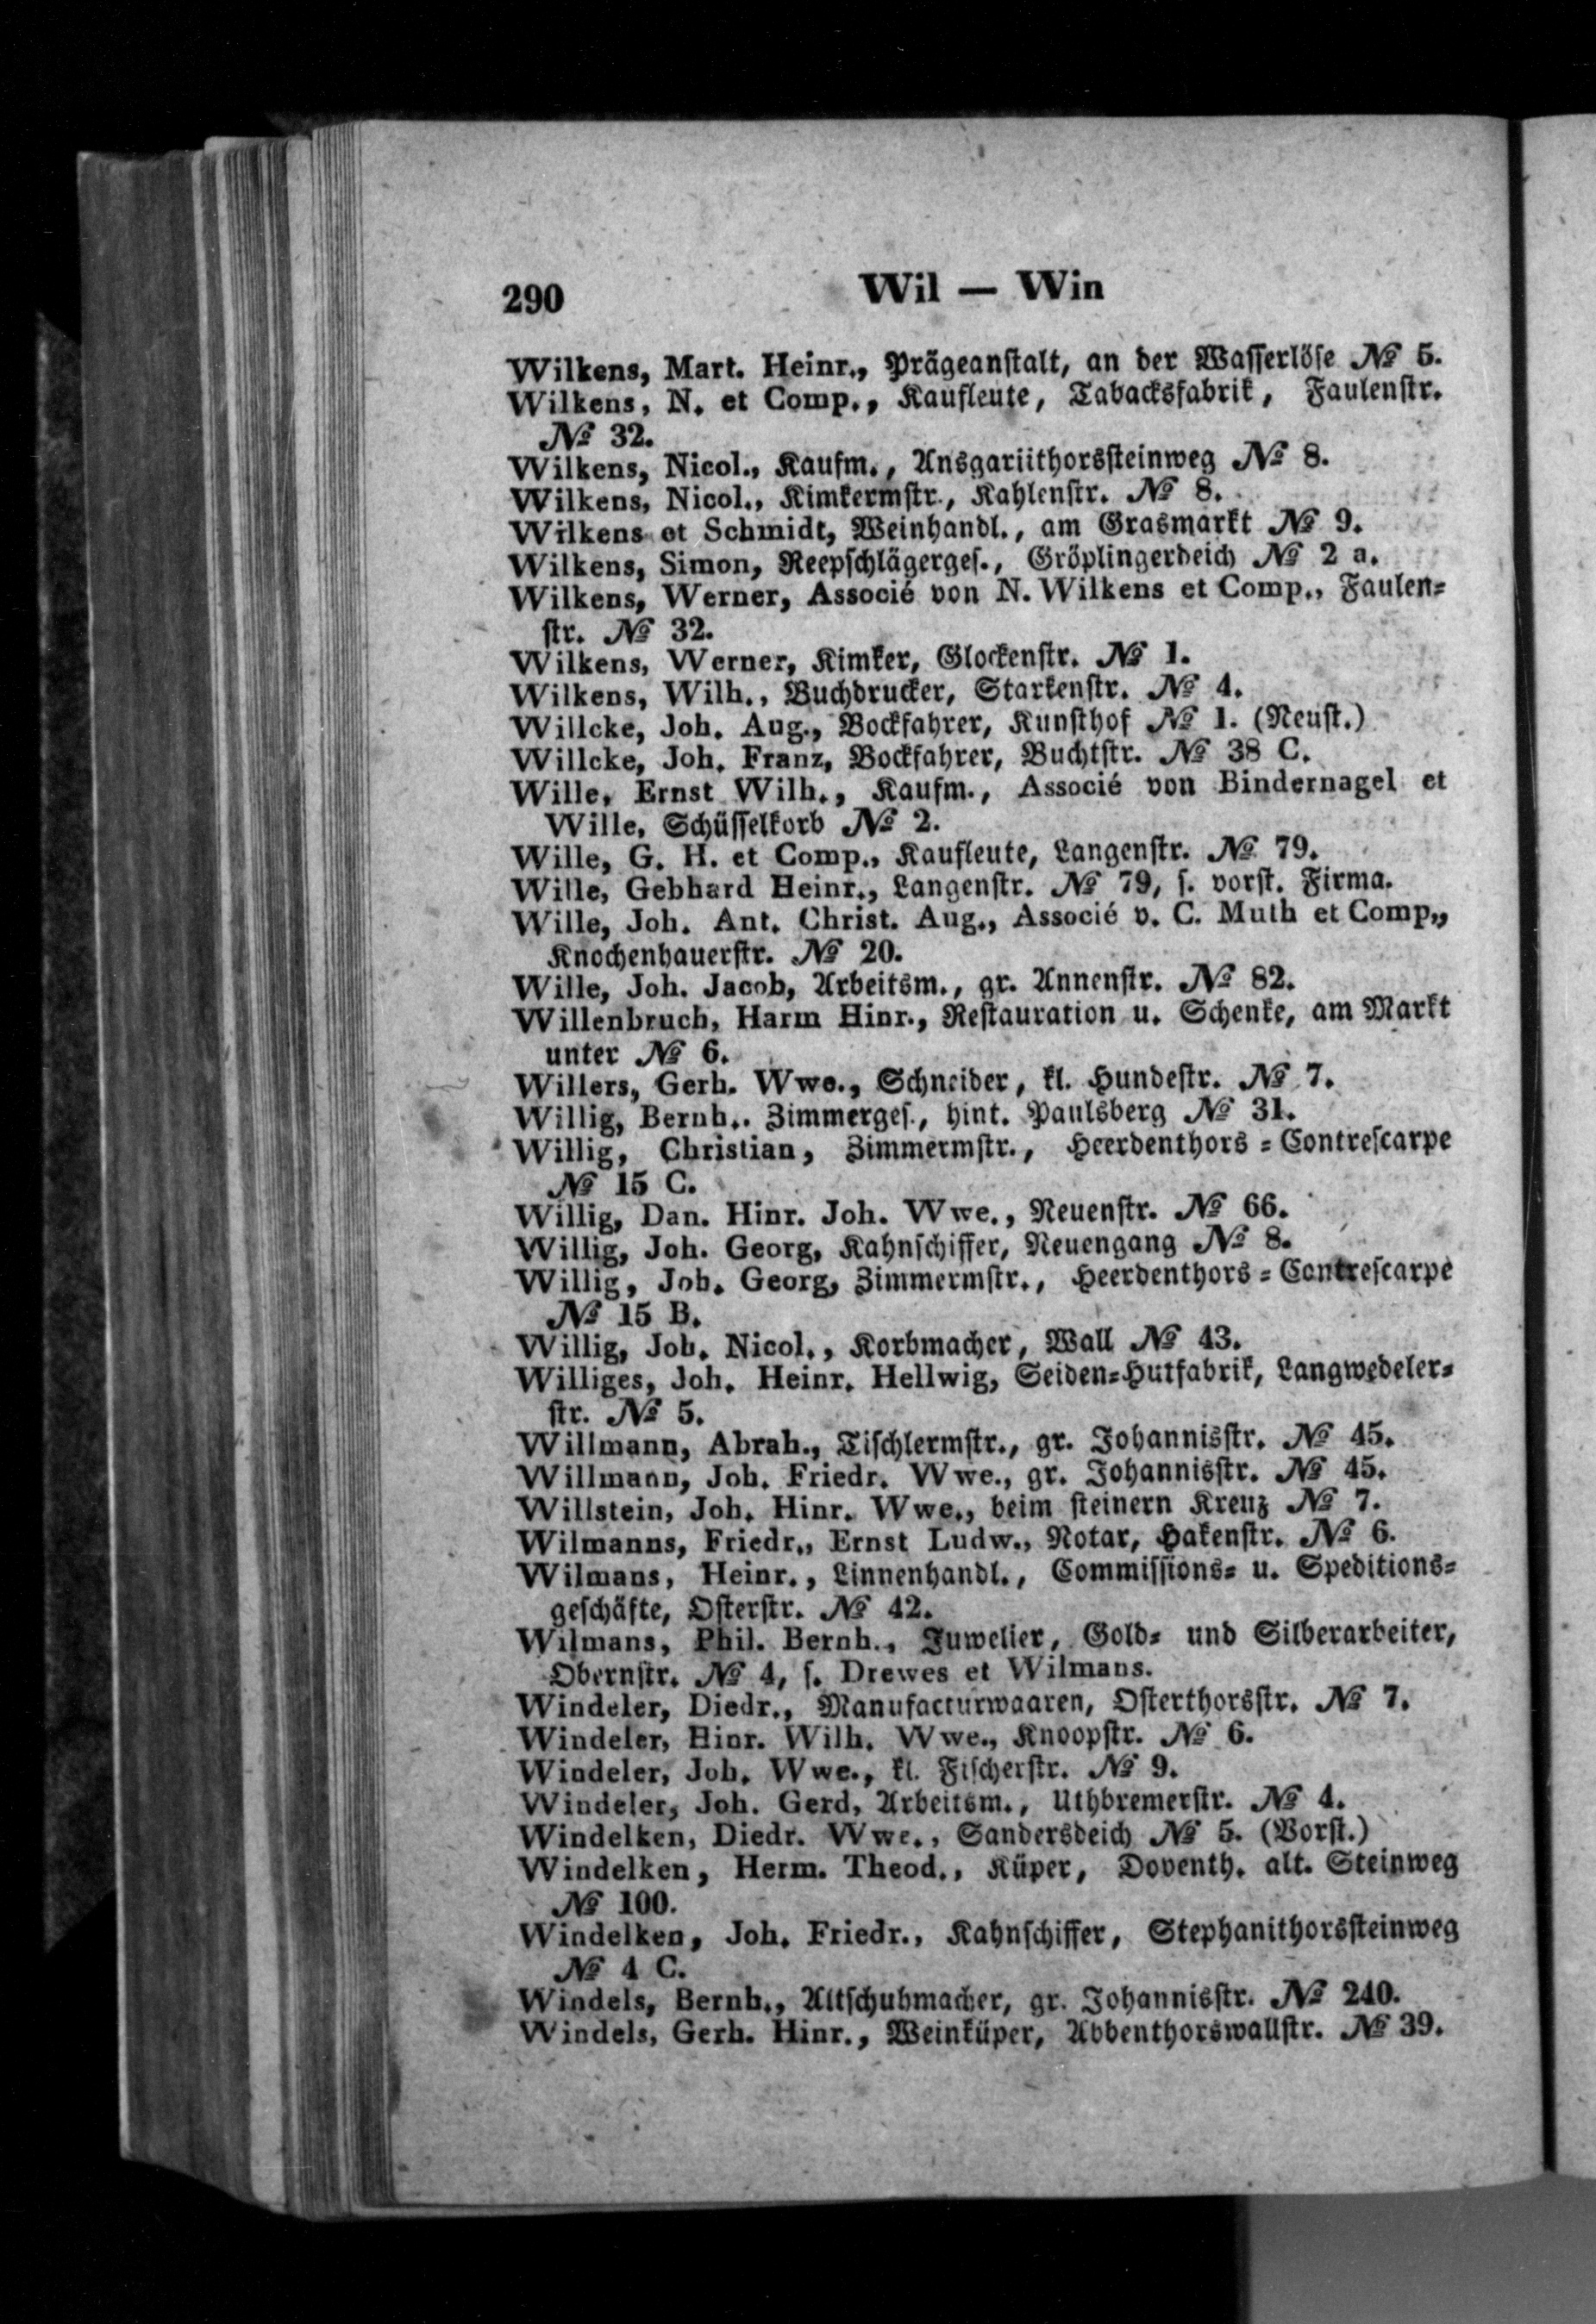 290
Wil — Win
Wilkens, Mart. Heinr., Prägeanstalt, an der Wasserlöse № 5.
Wilkens, N. et Comp., Kaufleute, Tabacksfabrik, Faulenstr.
№ 32.
Wilkens, Nicol., Kaufm., Ansgariithorssteinweg № 8.
Wilkens, Nicol., Kimkermstr., Kahlenstr. № 8.
Wilkens et Schmidt, Weinhandl., am Grasmarkt № 9.
Wilkens, Simon, Reepschlägerges., Gröplingerdeich № 2 a.
Wilkens, Werner, Associé von N. Wilkens et Comp., Faulen-
str. № 32.
Wilkens, Werner, Kimker, Glockenstr. № 1.
Wilkens, Wilh., Buchdrucker, Starkenstr. № 4.
Willcke, Joh. Aug., Bockfahrer, Kunsthof № 1. (Neust.)
Willcke, Joh. Franz, Bockfahrer, Buchtstr. № 38 C.
Wille, Ernst Wilh., Kaufm., Associé von Bindernagel et
Wille, Schüsselkorb № 2.
Wille, G. H. et Comp., Kaufleute, Langenstr. № 79.
Wille, Gebhard Heinr., Langenstr. № 79, s. vorst. Firma.
Wille, Joh. Ant. Christ. Aug., Associé v. C. Muth et Comp.,
Knochenhauerstr. № 20.
Wille, Joh. Jacob, Arbeitsm., gr. Annenstr. № 82.
Willenbruch, Harm Hinr., Restauration u. Schenke, am Markt
unter № 6.
Willers, Gerh. Wwe., Schneider, kl. Hundestr. № 7.
Willig, Bernh., Zimmerges., hint. Paulsberg № 31.
Willig, Christian, Zimmermstr., Heerdenthors-Contrescarpe
№ 15 C.
Willig, Dan. Hinr. Joh. Wwe., Neuenstr. № 66.
Willig, Joh. Georg, Kahnschiffer, Neuengang № 8.
Willig, Joh. Georg, Zimmermstr., Heerdenthors-Contrescarpe
№ 15 B.
Willig, Joh. Nicol., Korbmacher, Wall № 43.
Williges, Joh. Heinr. Hellwig, Seiden-Hutfabrik, Langwedeler-
str. № 5.
Willmann, Abrah., Tischlermstr., gr. Johannisstr. № 45.
Willmann, Joh. Friedr. Wwe., gr. Johannisstr. № 45.
Willstein, Joh. Hinr. Wwe., beim steinern Kreuz № 7.
Wilmanns, Friedr., Ernst Ludw., Notar, Hakenstr. № 6.
Wilmans, Heinr., Linnenhandl., Commissions- u. Speditions-
geschäfte, Osterstr. № 42.
Wilmans, Phil. Bernh., Juwelier, Gold- und Silberarbeiter,
Obernstr. № 4, s. Drewes et Wilmans.
Windeler, Diedr., Manufacturwaaren, Osterthorsstr. № 7.
Windeler, Hinr. Wilh. Wwe., Knoopstr. № 6.
Windeler, Joh. Wwe., kl. Fischerstr. № 9.
Windeler, Joh. Gerd, Arbeitsm., Uthbremerstr. № 4.
Windelken, Diedr. Wwe., Sandersdeich № 5. (Vorst.)
Windelken, Herm. Theod., Küper, Doventh. alt. Steinweg
№ 100.
Windelken, Joh. Friedr., Kahnschiffer, Stephanithorssteinweg
№ 4 C.
Windels, Bernh., Altschuhmacher, gr. Johannisstr. № 240.
Windels, Gerh. Hinr., Weinküper, Abbenthorswallstr. № 39.